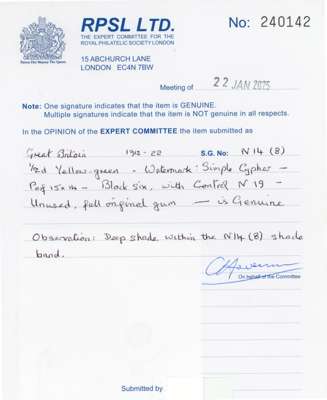 RPSL LTD.
THE EXPERT COMMITTEE FOR THE
ROYAL PHILATELIC SOCIETY LONDON
No: 240142
15 ABCHURCH LANE
LONDON EC4N 7BW
Meeting of 22 JAN 2025
Note: One signature indicates that the item is GENUINE.
Multiple signatures indicate that the item is NOT genuine in all respects.
In the OPINION of the EXPERT COMMITTEE the item submitted as
Great Britain 1912-22 S.G. No: N14 (8)
½d Yellow-green - Watermark: Simple Cypher -
Perf 15x14 - Block six, with Control N 19 -
Unused, full original gum — is Genuine
Observation: Deep shade within the N14 (8) shade
band.
On behalf of the Committee
Submitted by